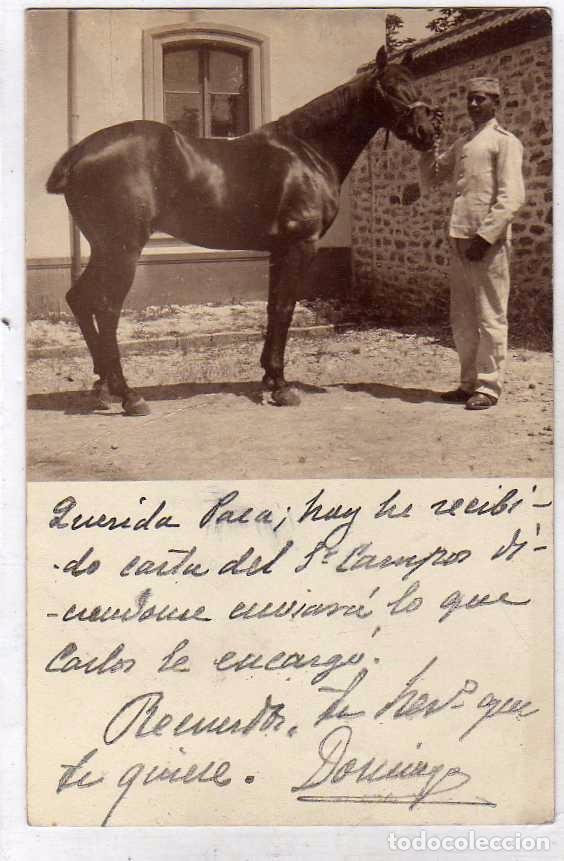 Querida Paca; hoy he recibi-
-do carta del Sr Campos di-
-ciendome enviará lo que
Carlos le encargó.
Recuerdos, tu herº que
te quiere. Domingo
todocoleccion.net